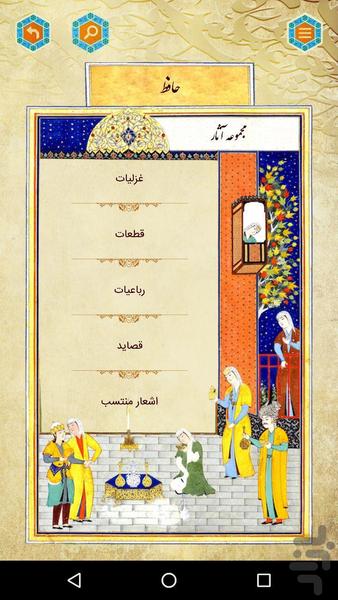 حافظ
مجموعه آثار
غزلیات
قطعات
رباعیات
قصاید
اشعار منتسب